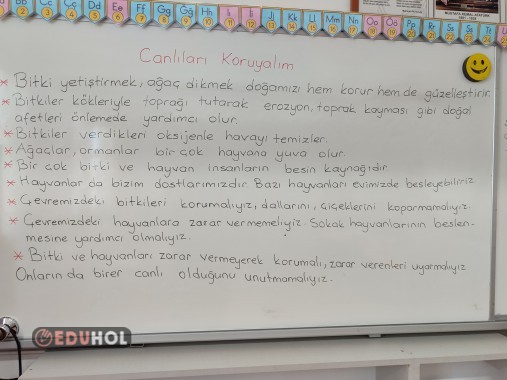 Bb Cc Çç Dd Ee Ff Gg Ğğ Hh Iı İi Jj Kk Ll Mm Nn Oo Öö Pp Rr Ss Şş Tt
Canlıları Koruyalım
* Bitki yetiştirmek, ağaç dikmek doğamızı hem korur hem de güzelleştirir
* Bitkiler kökleriyle toprağı tutarak erozyon, toprak kayması gibi doğal
afetleri önlemede yardımcı olur.
* Bitkiler verdikleri oksijenle havayı temizler.
* Ağaçlar, ormanlar bir çok hayvana yuva olur.
* Bir çok bitki ve hayvan insanların besin kaynağıdır
* Hayvanlar da bizim dostlarımızdır. Bazı hayvanları evimizde besleyebiliriz
* Çevremizdeki bitkileri korumalıyız, dallarını, çiçeklerini koparmamalıyız.
* Çevremizdeki hayvanlara zarar vermemeliyiz. Sokak hayvanlarının beslen-
mesine yardımcı olmalıyız.
* Bitki ve hayvanları zarar vermeyerek korumalı, zarar verenleri uyarmalıyız
Onların da birer canlı olduğunu unutmamalıyız.
EDUHOL